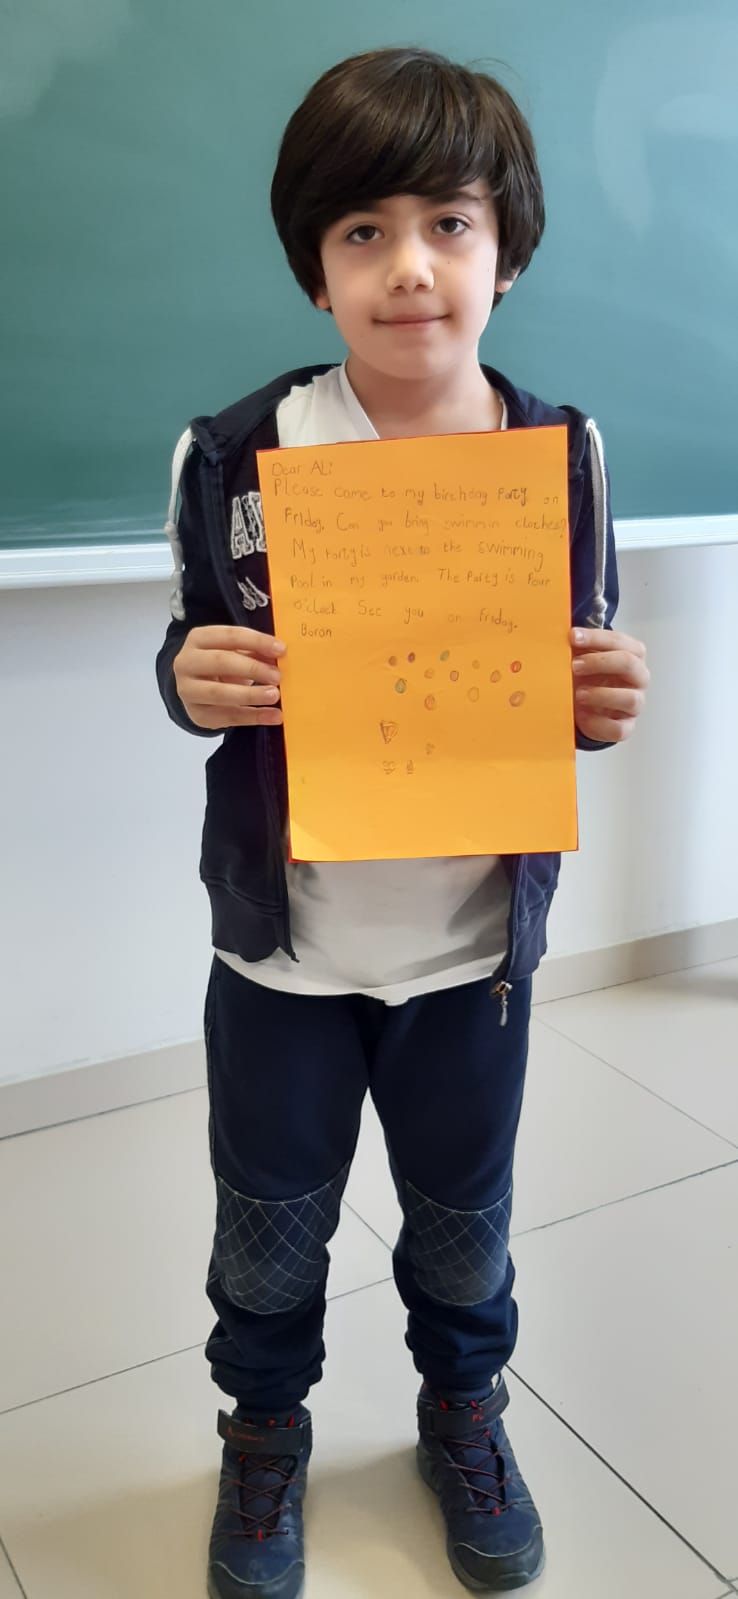 Dear ALi
Please come to my birthday Party on
Friday. Can you bring swimmin clothes?
My Party is next to the swimming
Pool in my garden. The Party is Four
o'clock See you on Friday.
Boran